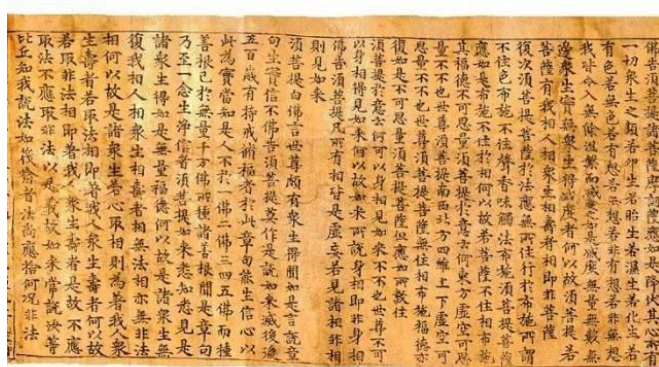 佛告須菩提諸菩薩摩訶薩應如是降伏其心所有
一切衆生之類若卵生若胎生若濕生若化生若
有色若無色若有想若無想若非有想若非無想
我皆令入無餘涅槃而滅度之如是滅度無量無數無
邊衆生實無衆生得滅度者何以故須菩提若
菩薩有我相人相衆生相壽者相即非菩薩
復次須菩提菩薩於法應無所住行於布施所謂
不住色布施不住聲香味觸法布施須菩提菩薩
應如是布施不住於相何以故若菩薩不住相布施
其福德不可思量須菩提於意云何東方虛空可思
量不不也世尊須菩提南西北方四維上下虛空可
思量不不也世尊須菩提菩薩無住相布施福德亦
復如是不可思量須菩提菩薩但應如所教住
須菩提於意云何可以身相見如來不不也世尊不可
以身相得見如來何以故如來所說身相即非身相
佛告須菩提凡所有相皆是虛妄若見諸相非相
則見如來
須菩提白佛言世尊頗有衆生得聞如是言說章
句生實信不佛告須菩提莫作是說如來滅後後
五百歲有持戒修福者於此章句能生信心以
此為實當知是人不於一佛二佛三四五佛而種
善根已於無量千万佛所種諸善根聞是章句
乃至一念生淨信者須菩提如來悉知悉見是
諸衆生得如是無量福德何以故是諸衆生無
復我相人相衆生相壽者相無法相亦無非法
相何以故是諸衆生若心取相則為著我人衆
生壽者若取法相即著我人衆生壽者何以故
若取非法相即著我人衆生壽者是故不應
取法不應取非法以是義故如來常說汝等
比丘知我說法如筏喻者法尚應捨何況非法